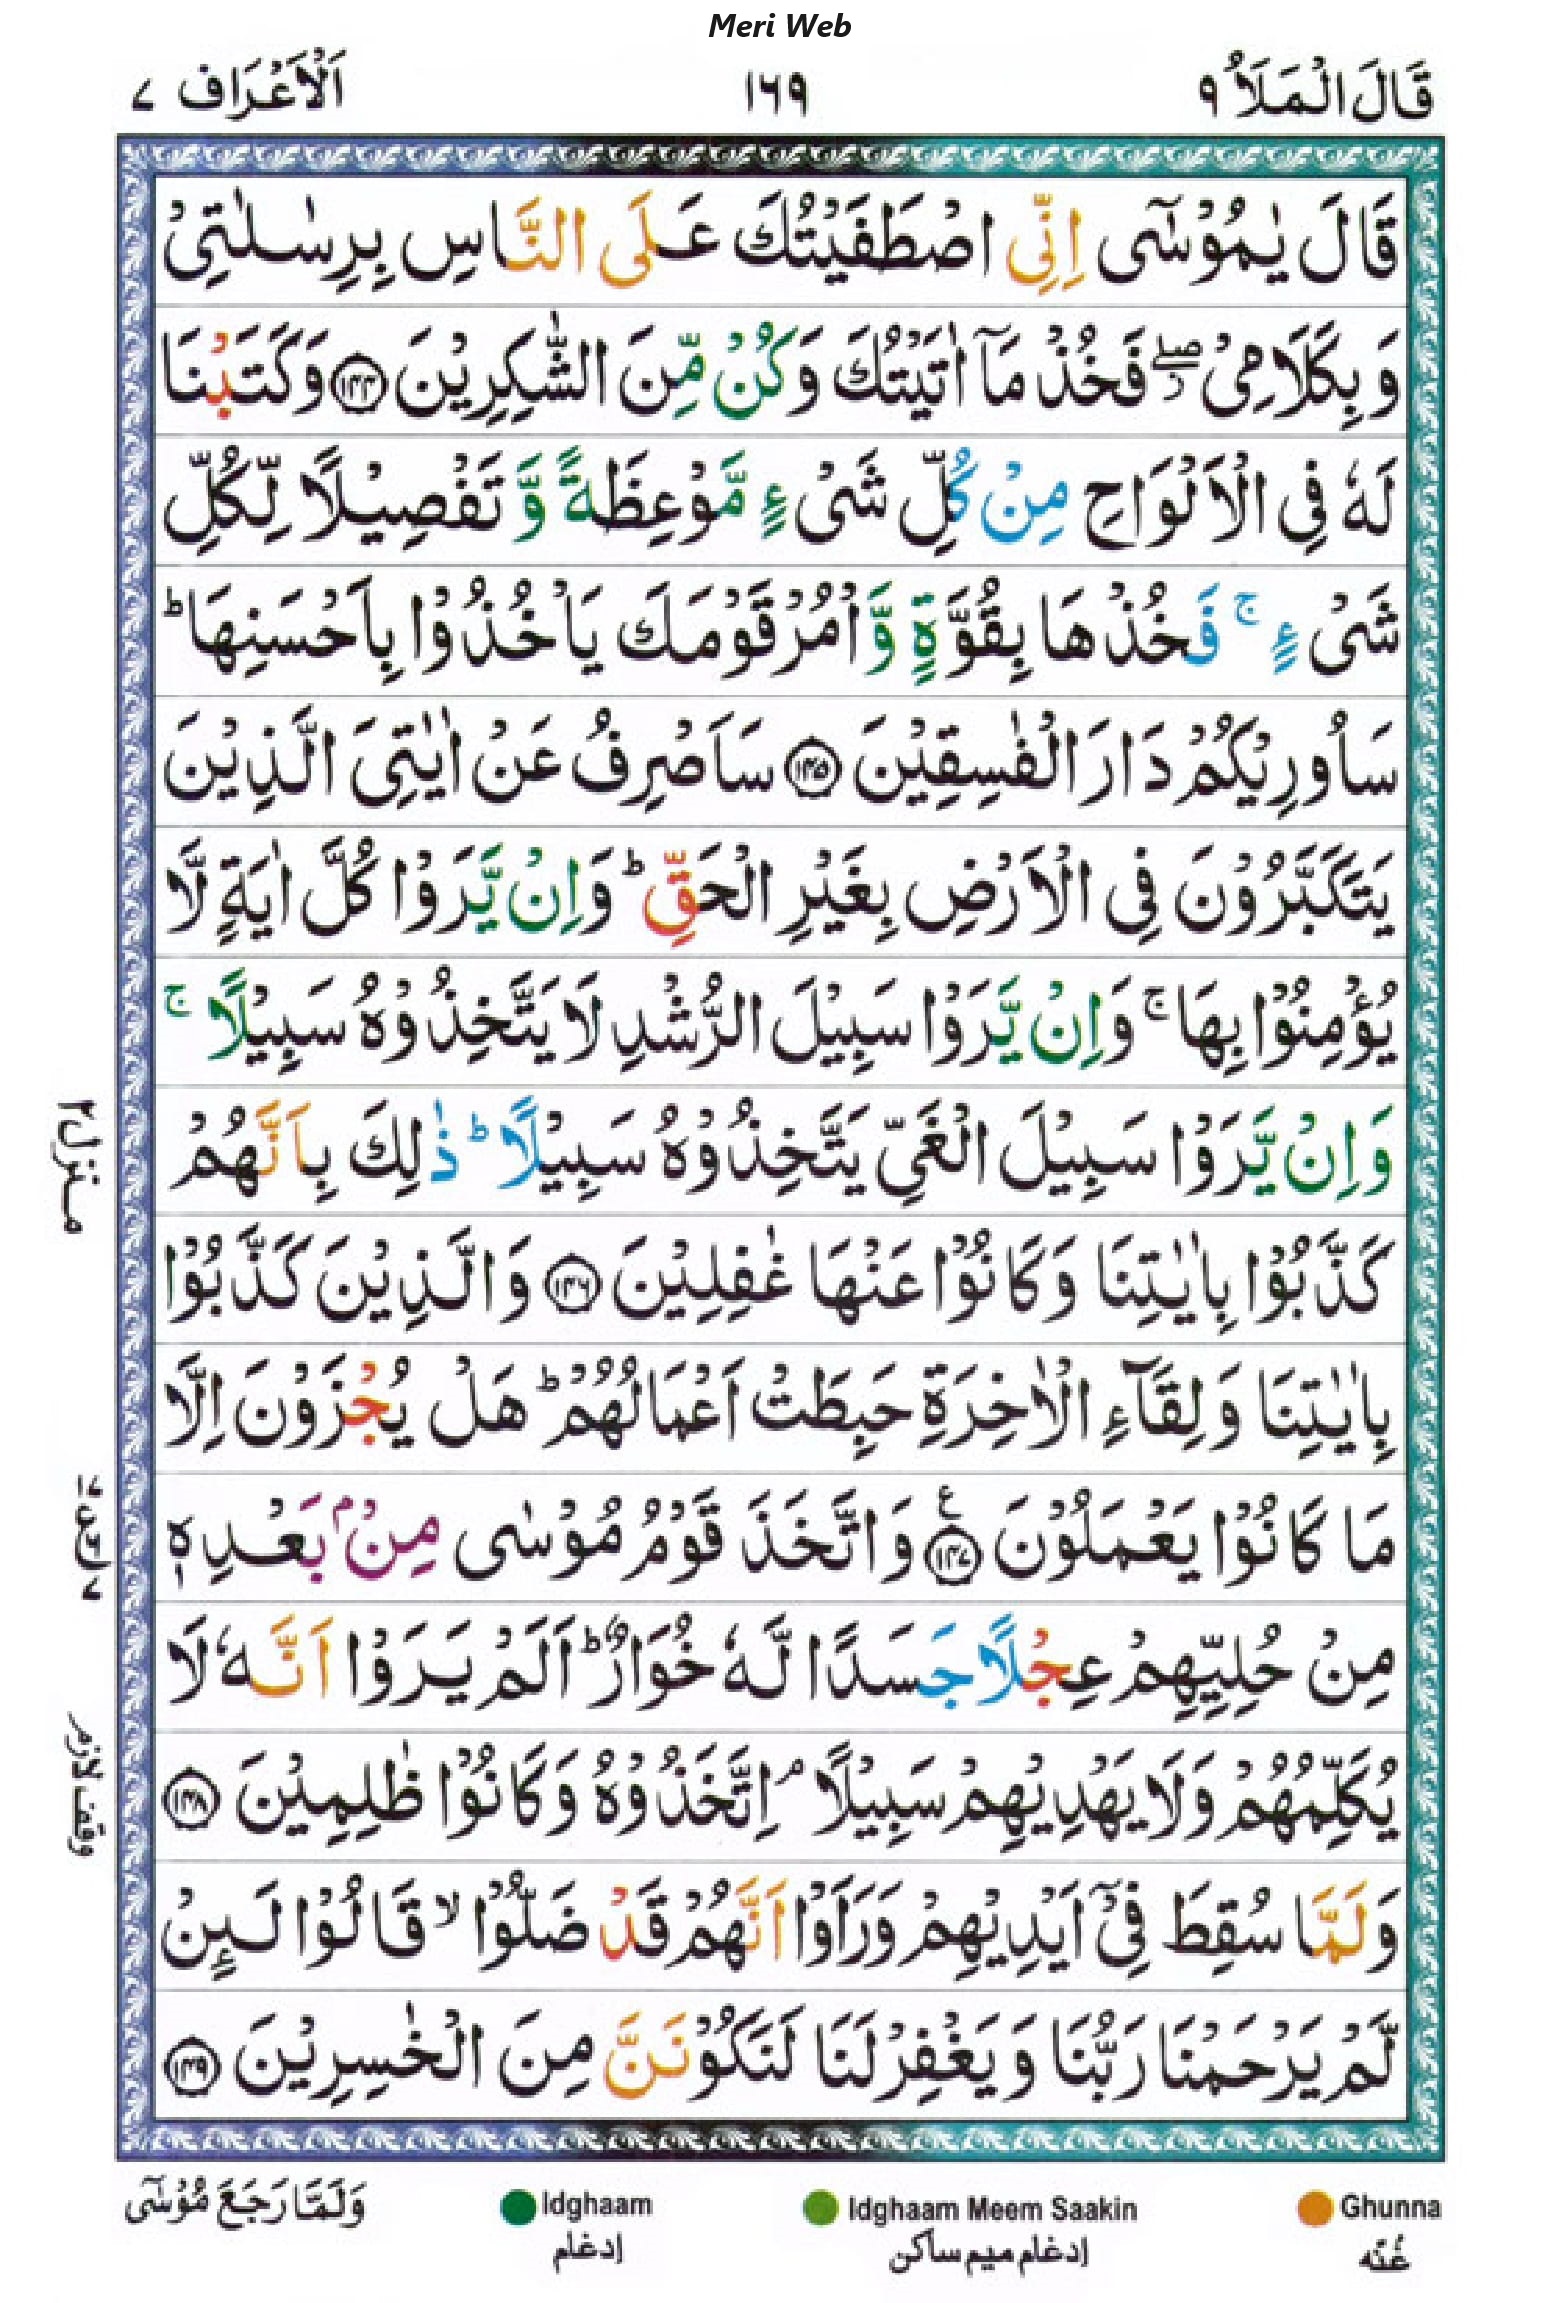 Meri Web
قَالَ الْمَلَاُ ٩
١٦٩
اَلْاَعْرَاف ٧
قَالَ يٰمُوْسٰۤى اِنِّى اصْطَفَيْتُكَ عَلَى النَّاسِ بِرِسٰلٰتِىْ
وَ بِكَلَامِىْ ۖ فَخُذْ مَاۤ اٰتَيْتُكَ وَكُنْ مِّنَ الشّٰكِرِيْنَ ﴿۱۴۴﴾ وَكَتَبْنَا
لَهٗ فِى الْاَلْوَاحِ مِنْ كُلِّ شَىْءٍ مَّوْعِظَةً وَّ تَفْصِيْلًا لِّكُلِّ
شَىْءٍ ۚ فَخُذْهَا بِقُوَّةٍ وَّاْمُرْ قَوْمَكَ يَاْخُذُوْا بِاَحْسَنِهَا ؕ
سَاُورِيْكُمْ دَارَ الْفٰسِقِيْنَ ﴿۱۴۵﴾ سَاَصْرِفُ عَنْ اٰيٰتِىَ الَّذِيْنَ
يَتَكَبَّرُوْنَ فِى الْاَرْضِ بِغَيْرِ الْحَقِّ ؕ وَاِنْ يَّرَوْا كُلَّ اٰيَةٍ لَّا
يُؤْمِنُوْا بِهَا ۚ وَاِنْ يَّرَوْا سَبِيْلَ الرُّشْدِ لَا يَتَّخِذُوْهُ سَبِيْلًا ۚ
وَاِنْ يَّرَوْا سَبِيْلَ الْغَىِّ يَتَّخِذُوْهُ سَبِيْلًا ؕ ذٰلِكَ بِاَنَّهُمْ
كَذَّبُوْا بِاٰيٰتِنَا وَكَانُوْا عَنْهَا غٰفِلِيْنَ ﴿۱۴۶﴾ وَالَّذِيْنَ كَذَّبُوْا
بِاٰيٰتِنَا وَلِقَآءِ الْاٰخِرَةِ حَبِطَتْ اَعْمَالُهُمْ ؕ هَلْ يُجْزَوْنَ اِلَّا
مَا كَانُوْا يَعْمَلُوْنَ ﴿۱۴۷﴾ ع وَاتَّخَذَ قَوْمُ مُوْسٰى مِنْۢ بَعْدِهٖ
مِنْ حُلِيِّهِمْ عِجْلًا جَسَدًا لَّهٗ خُوَارٌ ؕ اَلَمْ يَرَوْا اَنَّهٗ لَا
يُكَلِّمُهُمْ وَلَا يَهْدِيْهِمْ سَبِيْلًا ۘ اِتَّخَذُوْهُ وَكَانُوْا ظٰلِمِيْنَ ﴿۱۴۸﴾
وَلَمَّا سُقِطَ فِىْۤ اَيْدِيْهِمْ وَرَاَوْا اَنَّهُمْ قَدْ ضَلُّوْا ۙ قَالُوْا لَئِنْ
لَّمْ يَرْحَمْنَا رَبُّنَا وَيَغْفِرْ لَنَا لَنَكُوْنَنَّ مِنَ الْخٰسِرِيْنَ ﴿۱۴۹﴾
منزل ٢
وقف لازم
وَلَمَّا رَجَعَ مُوْسٰۤى
Idghaam
إدغام
Idghaam Meem Saakin
إدغام ميم ساكن
Ghunna
غُنّه